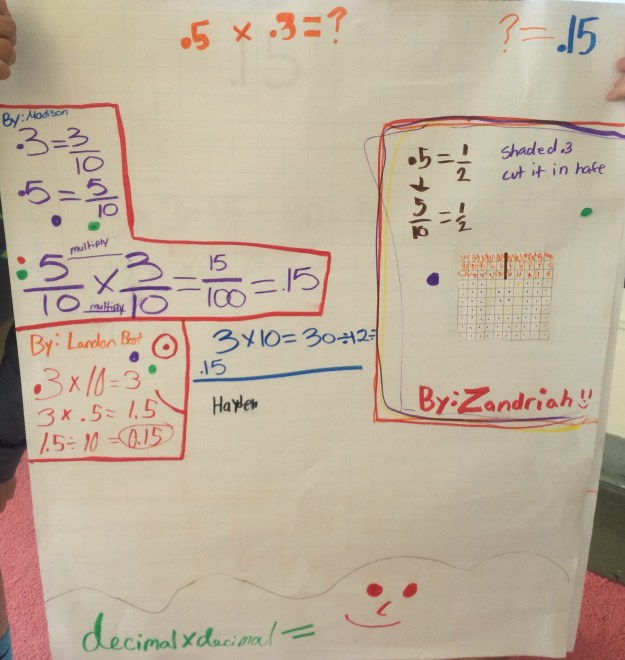 .5 × .3 = ?
? = .15
By: Madison
.3 = 3/10
.5 = 5/10
multiply
5/10 × 3/10 = 15/100 = .15
multiply
By: Landon
.3 × 10 = 3
3 × .5 = 1.5
1.5 ÷ 10 = 0.15
3 × 10 = 30 ÷ 12 =
.15
Hayden
.5 = 1/2
5/10 = 1/2
Shaded .3
cut it in hafe
By: Zandriah
decimal x decimal =